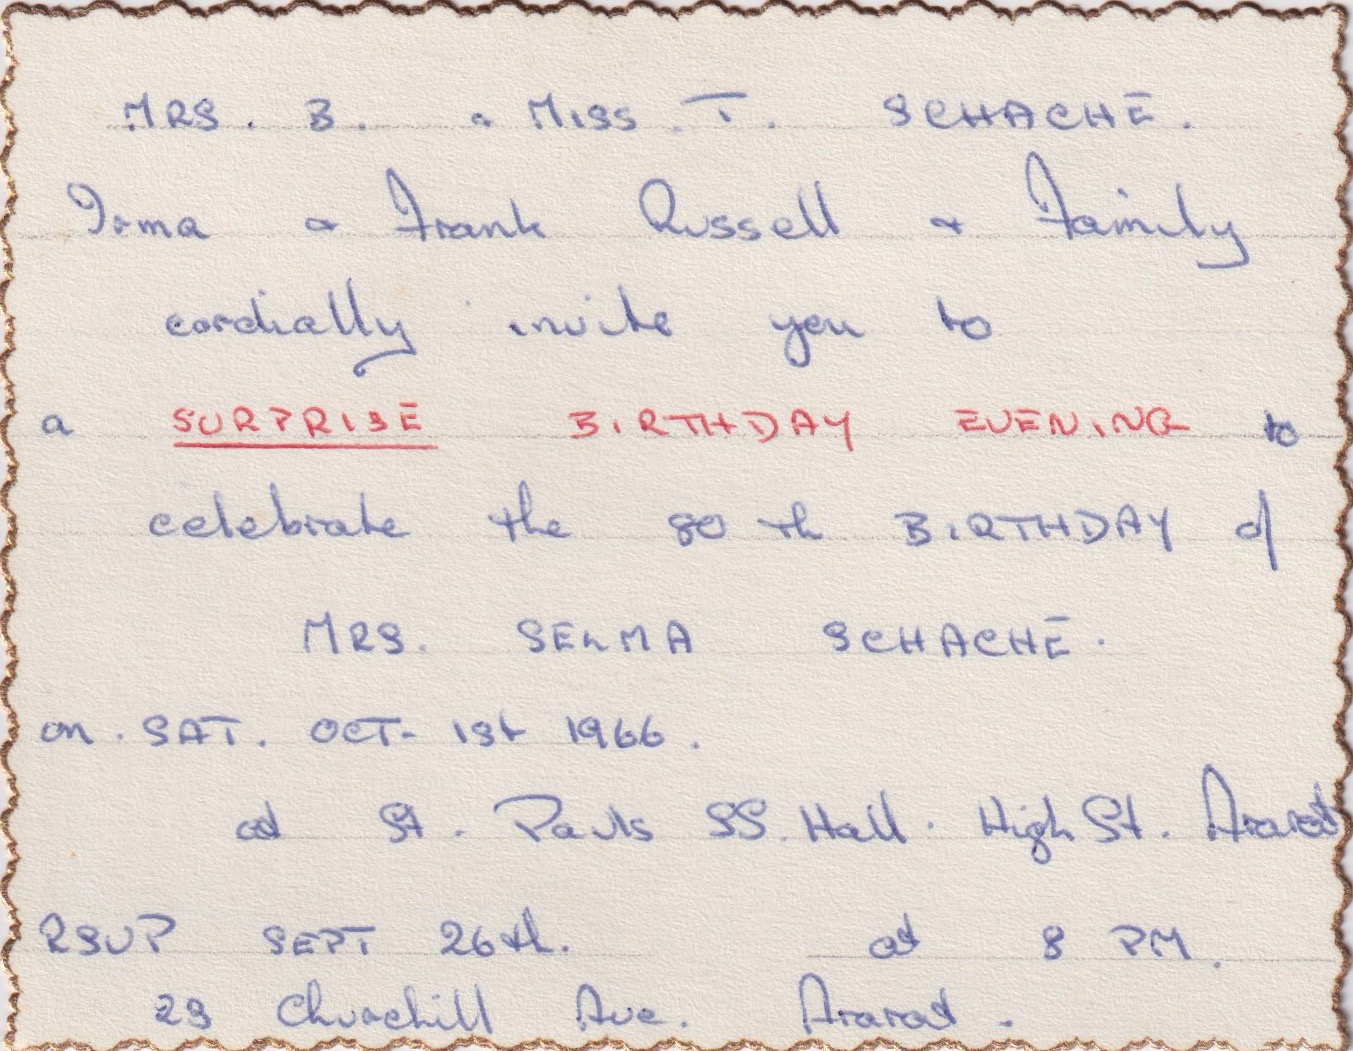 MRS. B. & MISS. T. SCHACHE.
Irma & Frank Russell & Family
cordially invite you to
a SURPRISE BIRTHDAY EVENING to
celebrate the 80th BIRTHDAY of
MRS. SELMA SCHACHE.
on. SAT. OCT- 1st 1966.
at St. Pauls SS. Hall. High St. Ararat
RSVP SEPT 26th. at 8 PM.
23 Churchill Ave. Ararat.